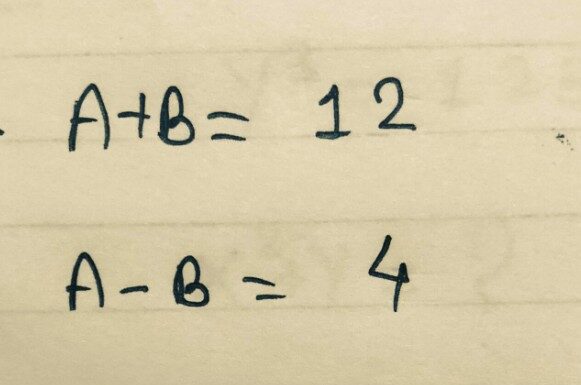 A+B= 12
A-B= 4